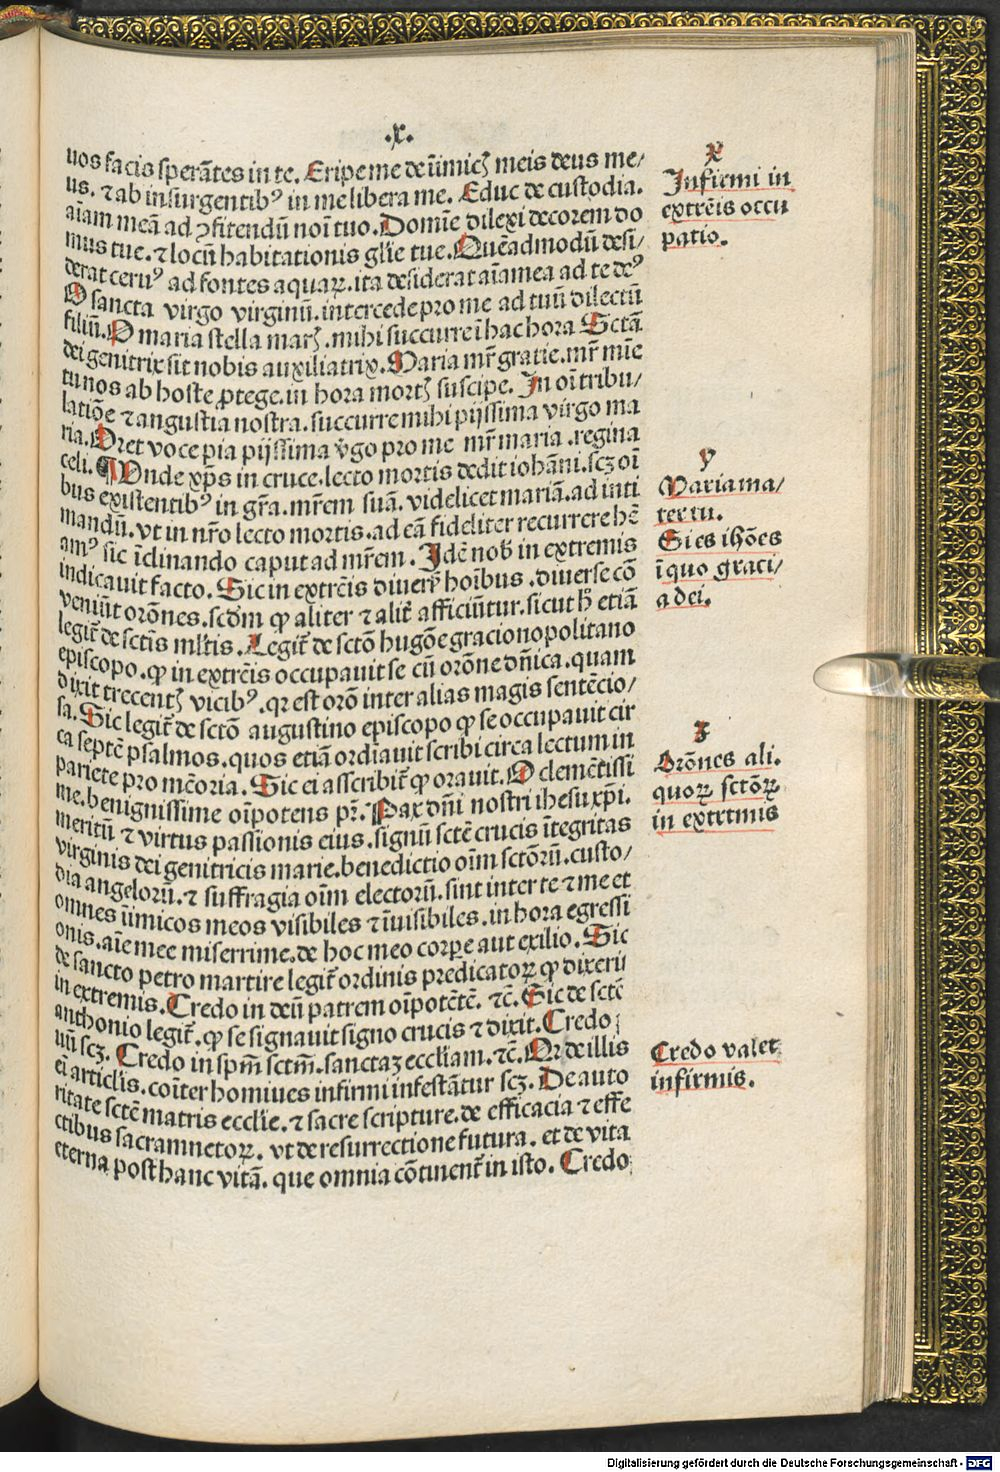 .x.
uos facis sperātes in te. Eripe me de īimicꝭ meis deus me/
us. ⁊ ab insurgentibꝰ in me libera me. Educ de custodia.
aīam meā ad ꝯfitendū noī tuo. Domīe dilexi decorem do
mus tue. ⁊ locū habitationis glīe tue. Quēadmodū desi/
derat ceruꝰ ad fontes aquaꝝ. ita desiderat aīa mea ad te deꝰ
O sancta virgo virginū. intercede pro me ad tuū dilectū
filiū. O maria stella marꝭ. mihi succurre ī hac hora. Sctā
dei genitrix sit nobis auxiliatrix. Maria mr̄ gratie. mr̄ mīe
tu nos ab hoste ꝓtege. in hora mortꝭ suscipe. In oī tribu/
latiōe ⁊ angustia nostra. succurre mihi pijssima virgo ma
ria. Oret voce pia pijssima v̄go pro me mr̄ maria. regina
celi. ¶ Unde xp̄s in cruce. lecto mortis dedit iohāni. scꝫ oī
bus existentibꝰ in gr̄a. mr̄em suā. videlicet mariā. ad inti
mandū. vt in nr̄o lecto mortis. ad eā fideliter recurrere hē
amꝰ sic īclinando caput ad mr̄em. Idē nob̄ in extremis
indicauit facto. Sic in extrēis diuerẜ hoībus. diuerse cō
veniūt orōnes. scd̄m ꝙ aliter ⁊ alit̄ afficiūtur. sicut h̄ etiā
legit̄ de sctīs ml̄tis. Legit̄ de sctō hugōe gracionopolitano
episcopo. ꝙ in extrēis occupauit se cū orōne dn̄ica. quam
dixit trecentꝭ vicibꝰ. qr est orō inter alias magis sentēcio/
sa. Sic legit̄ de sctō augustino episcopo ꝙ se occupauit cir
ca septē psalmos. quos etiā ordiauit scribi circa lectum in
pariete pro mēoria. Sic ei asscribit̄ ꝙ orauit. O clemētissi
me. benignissime oīpotens pr̄. Pax dn̄i nostri ihesu xp̄i.
meritū ⁊ virtus passionis eius. signū sctē crucis ītegritas
virginis dei genitricis marie. benedictio oīm sctōrū. custo/
dia angelorū. ⁊ suffragia oīm electorū. sint inter te ⁊ me et
omnes īimicos meos visibiles ⁊ īuisibiles. in hora egressi
onis. aīe mee miserrime. de hoc meo corꝑe aut exilio. Sic
de sancto petro martire legit̄ ordinis predicatoꝝ ꝙ dixerit
in extremis. Credo in deū patrem oīpotētē. ⁊c̄. Sic de sctē
anthonio legit̄. ꝙ se signauit signo crucis ⁊ dixit. Credo i
uū scꝫ. Credo in spm̄ sctm̄. sanctaꝫ eccl̄iam. ⁊c̄. Qr de illis
ei articl̄is. coīter homiues infirmi infestātur scꝫ. De auto
ritate sctē matris eccl̄ie. ⁊ sacre scripture. de efficacia ⁊ effe
ctibus sacramnetoꝝ. vt de resurrectione futura. et de vita
eterna post hanc vitā. que omnia cōtinent̄ in isto. Credo
x
Infirmi in
extrēis occu
patio.
y
Maria ma/
ter tu.
Si es ihōes
ī quo graci/
a dei.
z
Orōnes ali.
quoꝝ sctōꝝ
in extrtmis
Credo valet
infirmis.
Digitalisierung gefördert durch die Deutsche Forschungsgemeinschaft - DFG